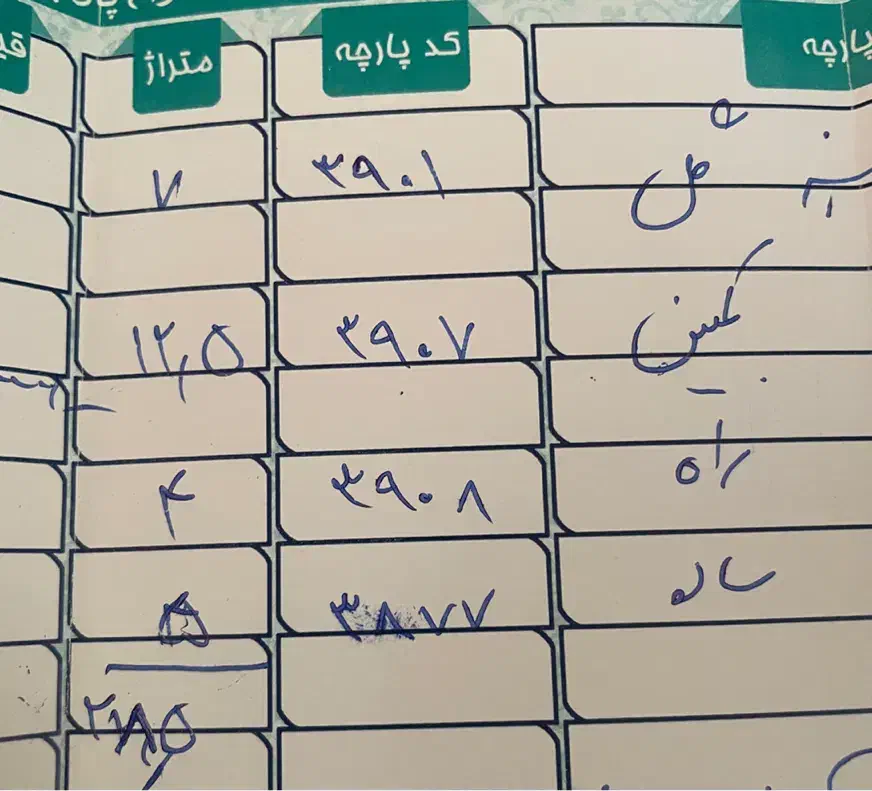 پارچه کد پارچه متراژ
۳۹۰۱ ۷
۳۹۰۷ ۱۲,۵
راه ۳۹۰۸ ۴
ساده ۳۸۷۷ ۵
۲۸,۵